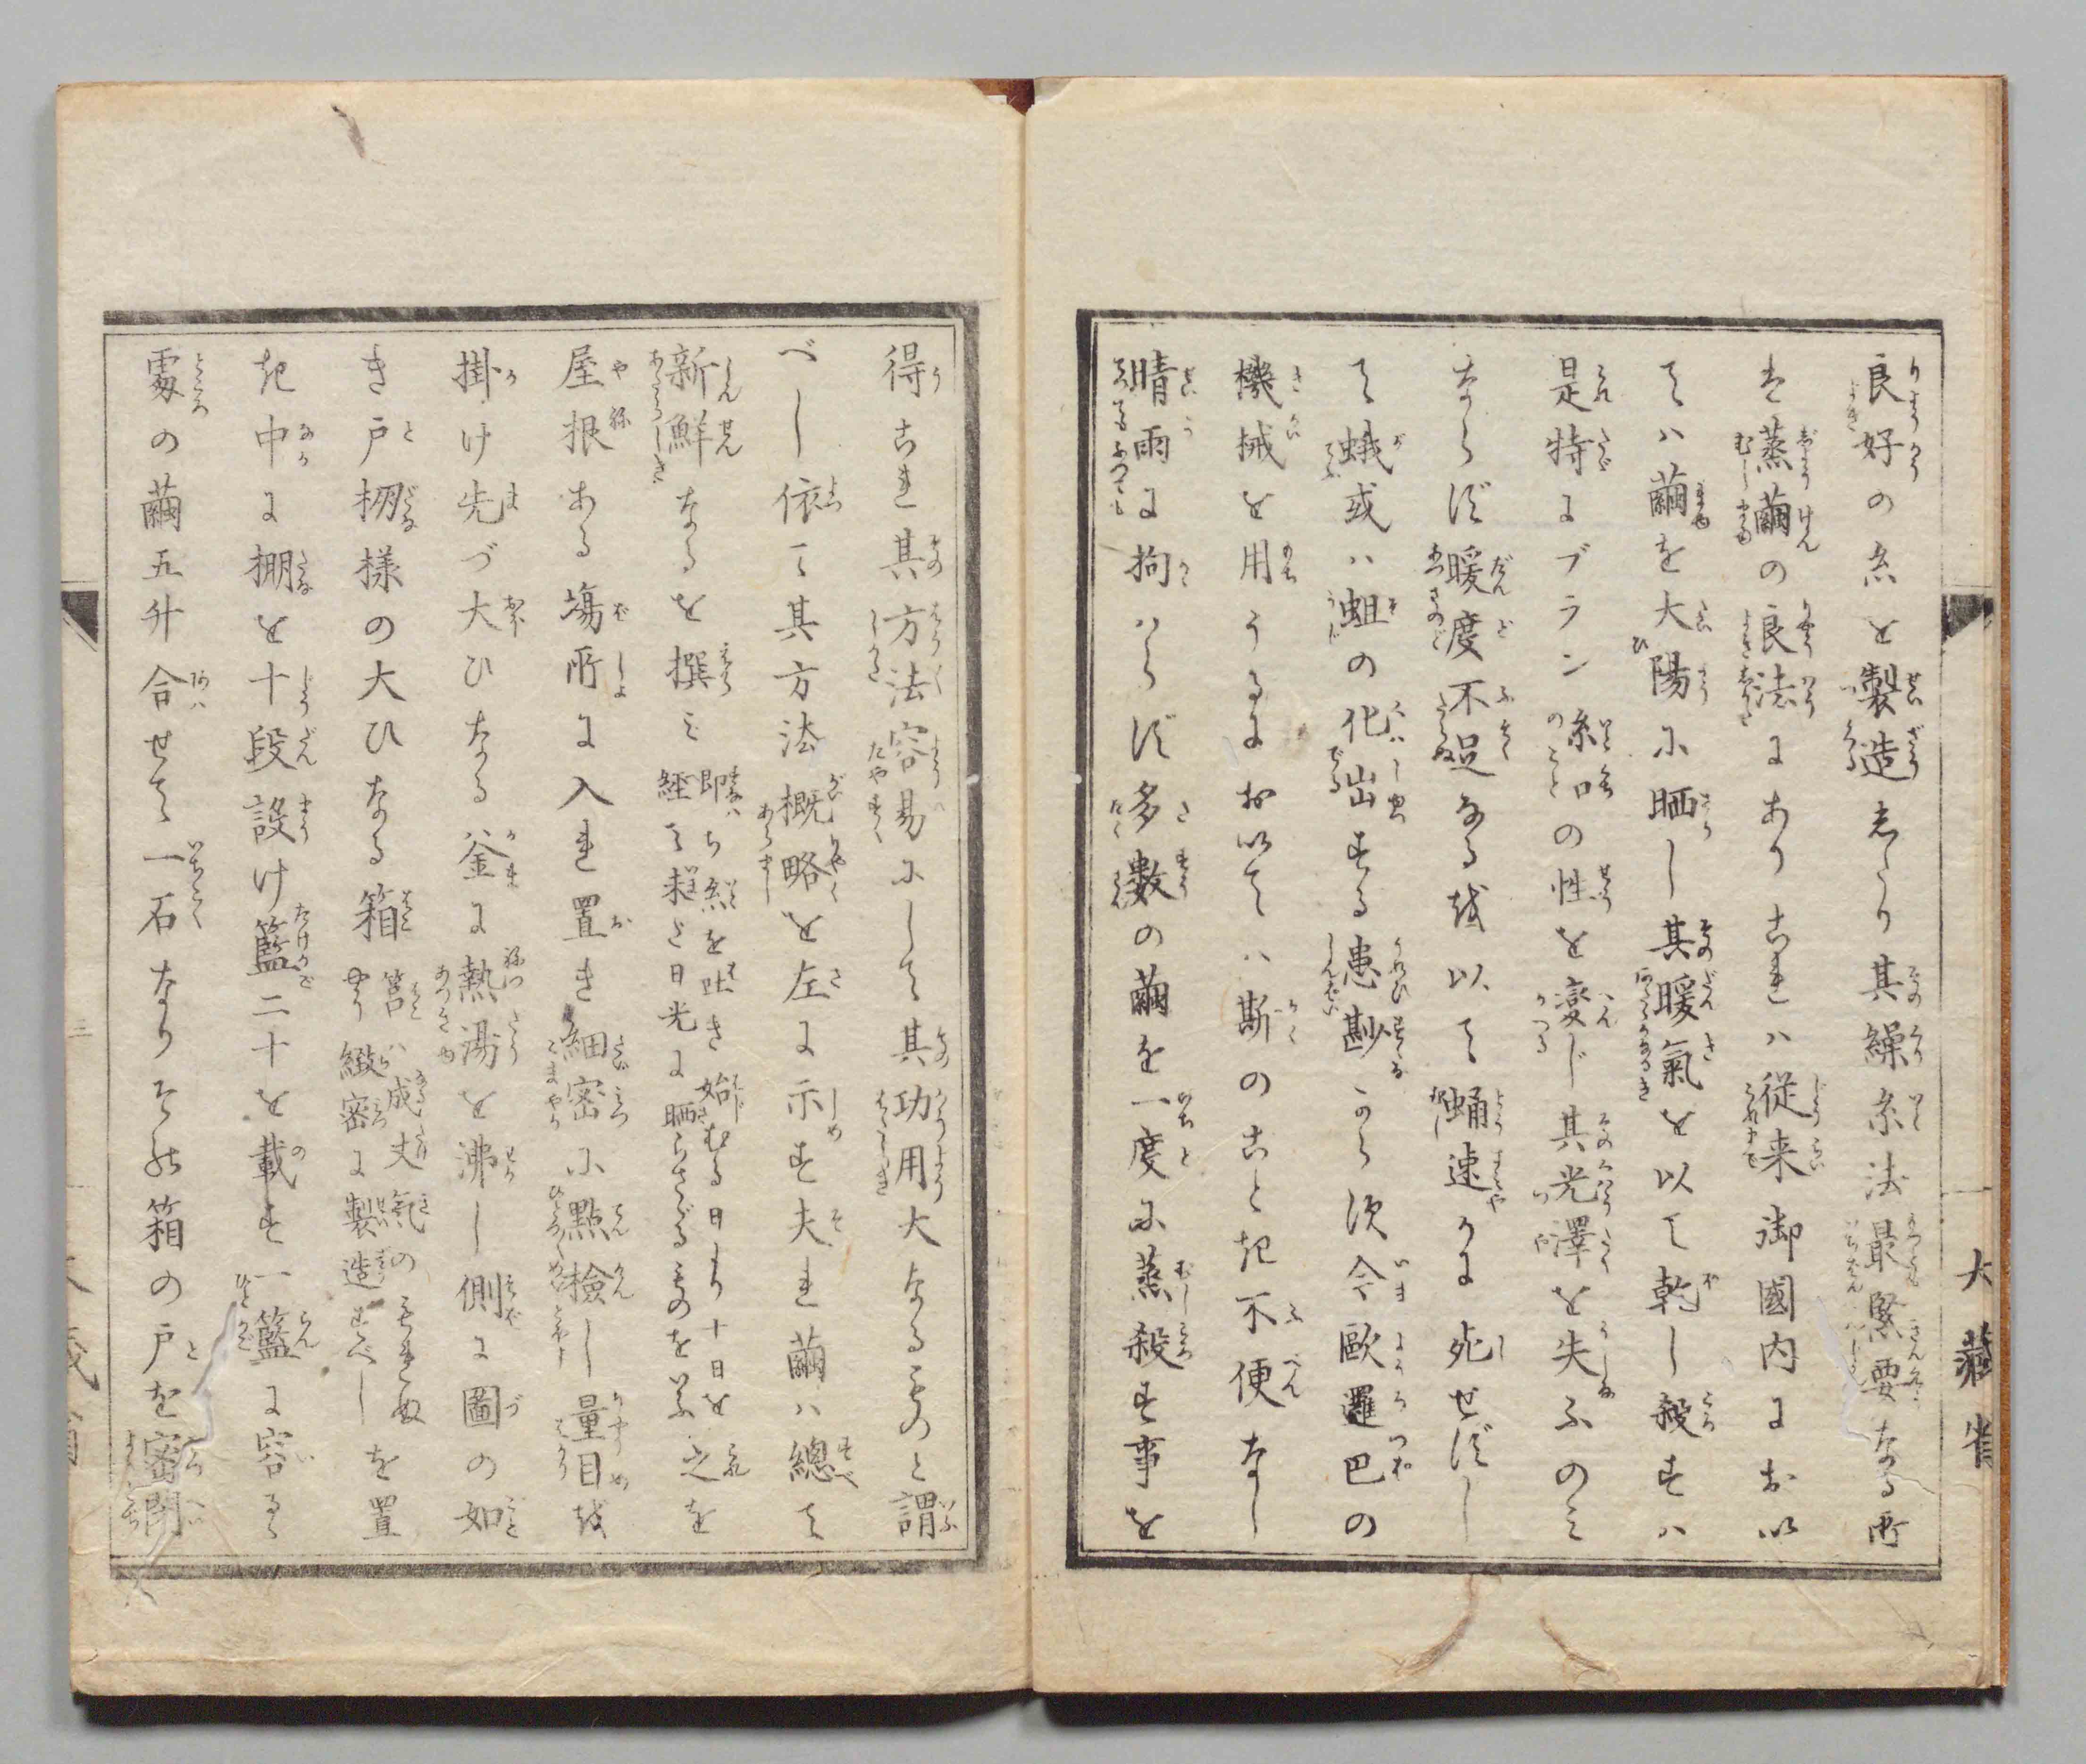 良好の糸を製造志たり其繰糸法最緊要なる所
は蒸繭の良法にありこれハ従来御國内におい
てハ繭を大陽に晒し其暖氣を以て乾し殺すハ
是特にブラン絲口の性を変じ其光澤を失ふのミ
ならず暖度不足なる故以て蛹速かに死せずし
て蛾或ハ蛆の化出する患尠からす今歐邏巴の
機械を用うるにおいてハ斯のことき不便なし
晴雨に拘ハらず多數の繭を一度に蒸殺す事を
大蔵省
得これ其方法容易にして其功用大なるものと謂
べし依て其方法概略を左に示す夫れ繭ハ總て
新鮮なるを撰ミ即ち絲を吐き始むる日より十日を経て
日光に晒らさゞるものをいふ之を
屋根ある塲所に入れ置き細密に點檢し量目を
掛け先づ大ひなる釜に熱湯を沸し側に圖の如
き戸棚様の大ひなる箱筥ハ成丈氣のもれぬ
やう緻密に製造すべしを置
き中に棚を十段設け籃二十を載す一籃に容るゝ
處の繭五升合せて一石なりその箱の戸を密閉
三